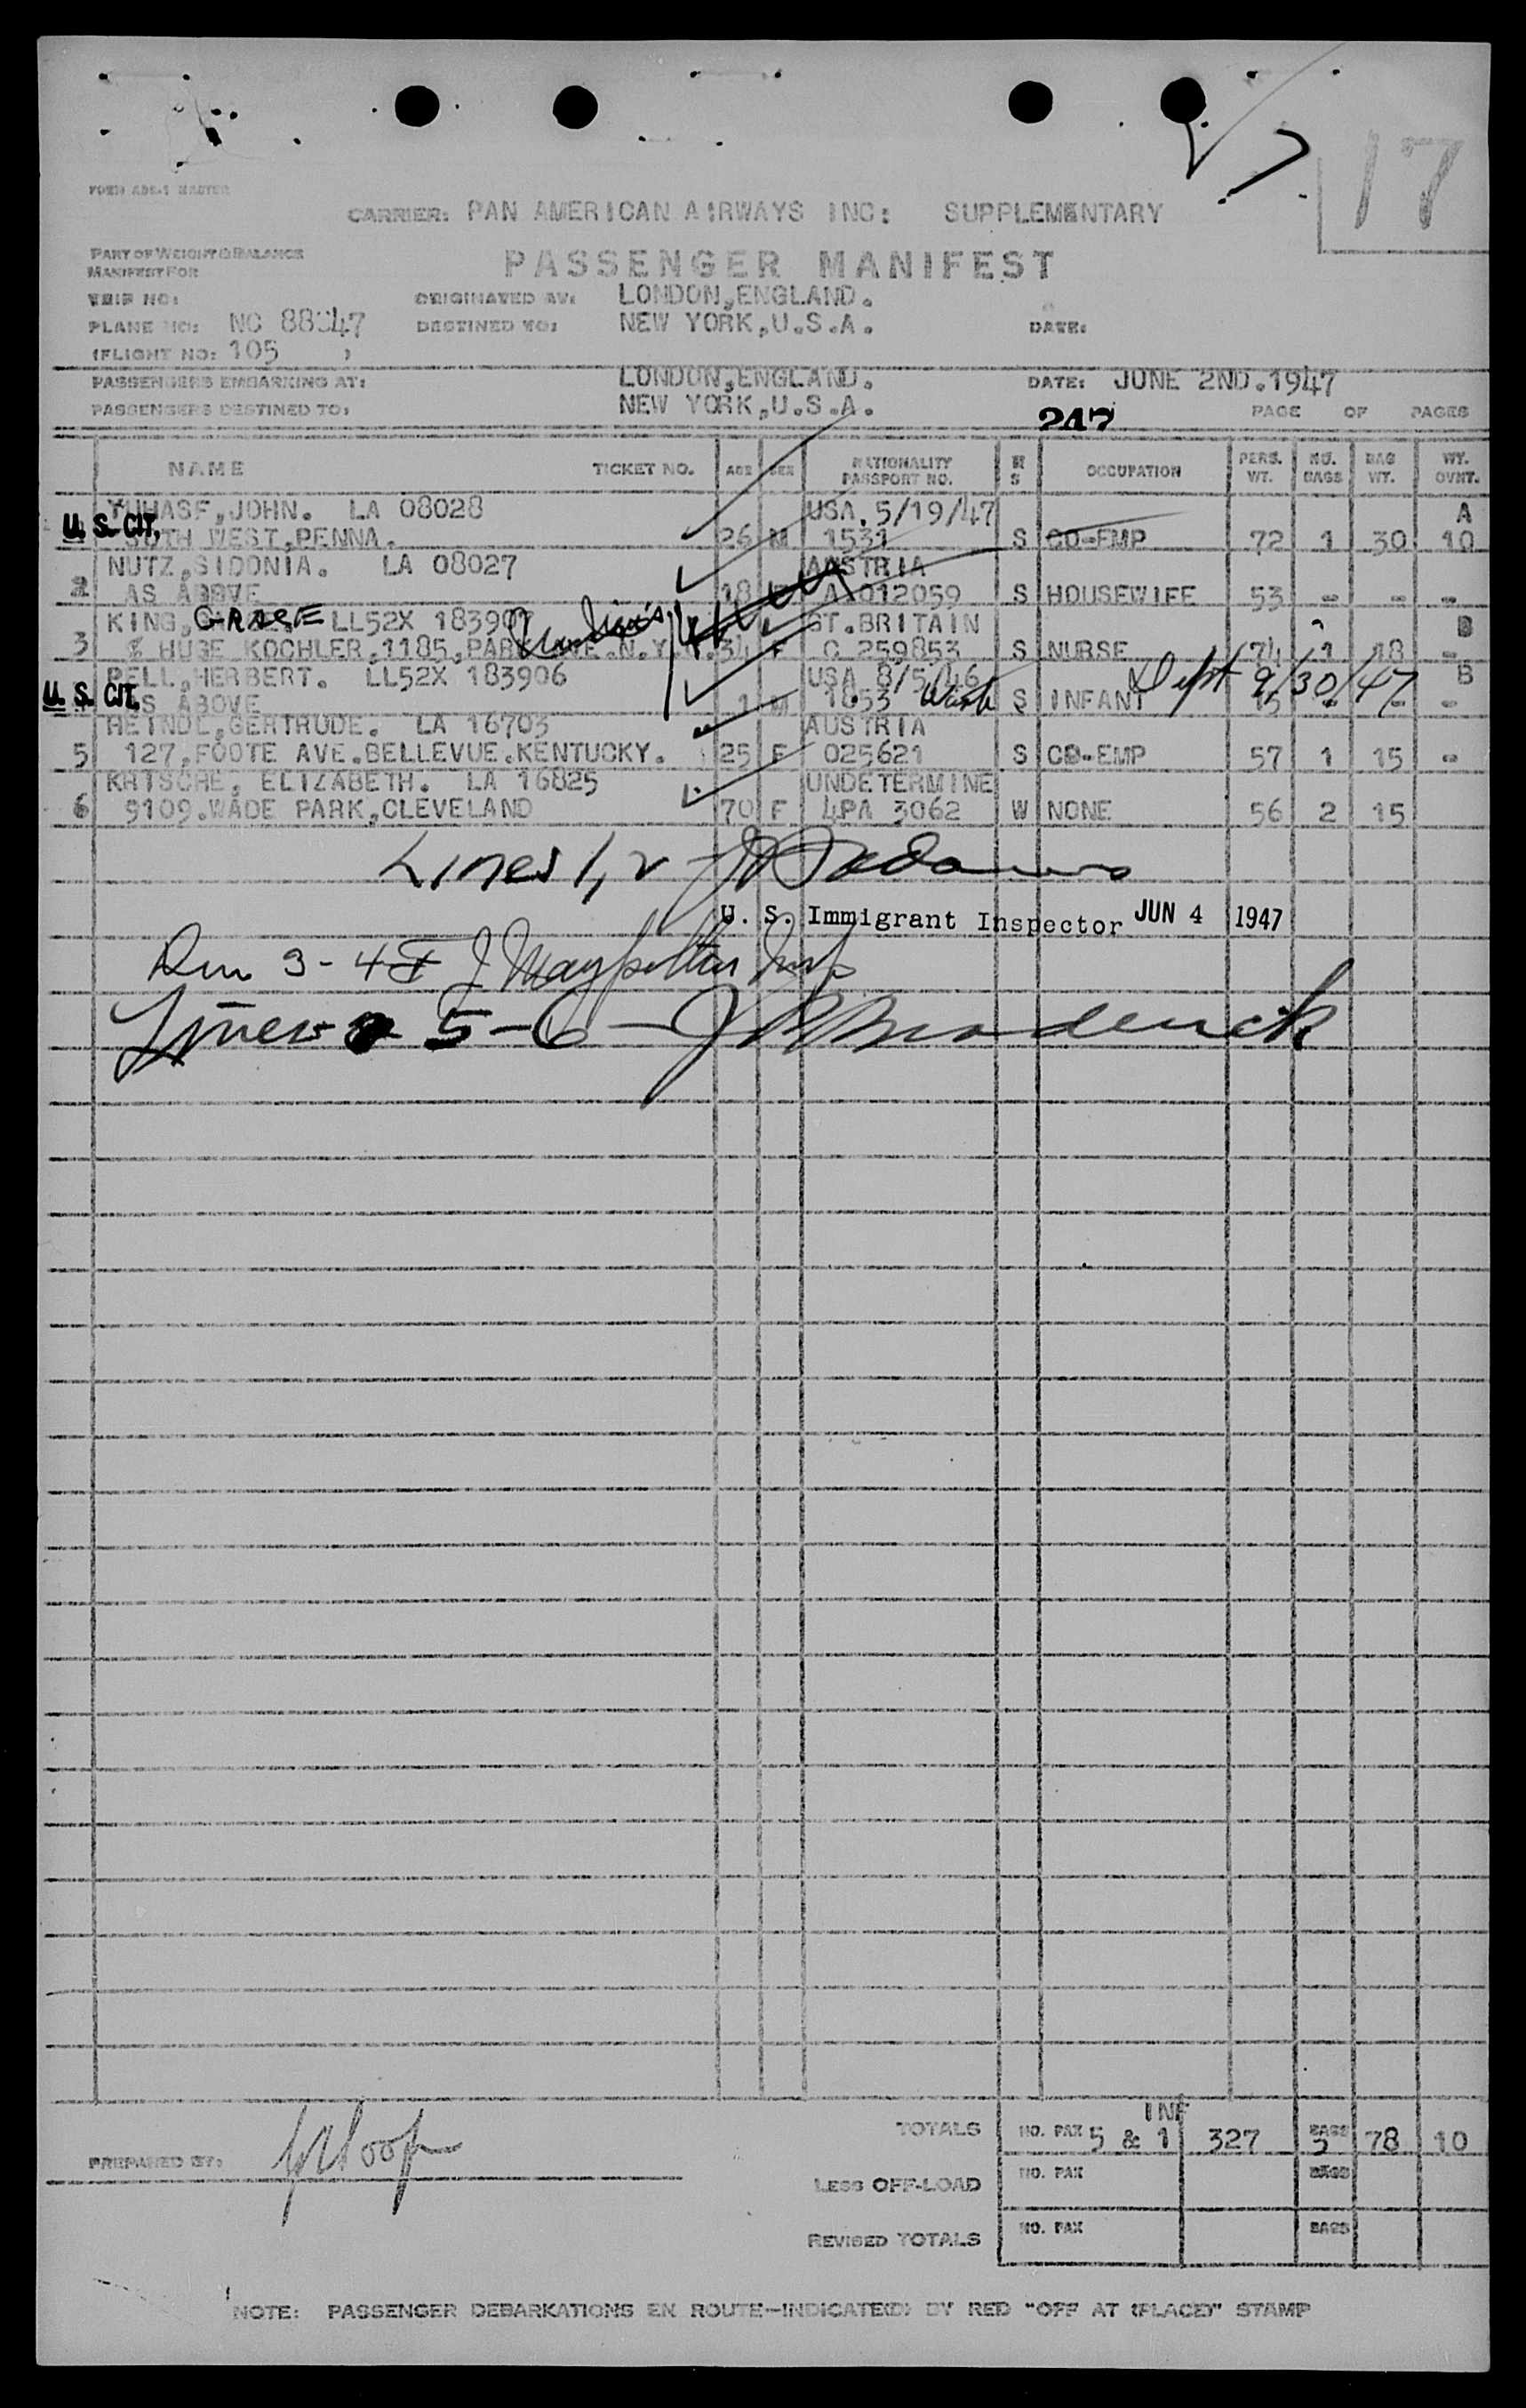 17
FORM ADS-1 MASTER
CARRIER: PAN AMERICAN AIRWAYS INC: SUPPLEMENTARY
PART OF WEIGHT & BALANCE
MANIFEST FOR
PASSENGER MANIFEST
TRIP NO: ORIGINATED AT: LONDON,ENGLAND.
PLANE NO: NC DESTINED TO: NEW YORK,U.S.A. DATE:
(FLIGHT NO: 105 )
PASSENGERS EMBARKING AT: LONDON,ENGLAND. DATE: JUNE 2ND.1947
PASSENGERS DESTINED TO: NEW YORK,U.S.A. 247 PAGE OF PAGES
NAME TICKET NO. AGE SEX NATIONALITY PASSPORT NO. M S OCCUPATION PERS. WT. NO. BAGS BAG WT. WT. OVNT.
YUHASF,JOHN. LA 08028 USA.5/19/47 A
U. S. CIT. WEST,PENNA. 26 M 1531 S CO-EMP 72 1 30 10
NUTZ,SIDONIA. LA 08027 AUSTRIA
2 AS ABOVE 18 012059 S HOUSEWIFE 53 - - -
KING, GRACE LL52X GT.BRITAIN B
3 % HUGE KOCHLER,1185,PARK AVE.N.Y. 34 F C 259853 S NURSE 74 1 18 -
PELL,HERBERT. LL52X 183906 USA 8/5/46 Dept 9/30/47 B
U. S. CIT. AS ABOVE 1 M 1853 Wash S INFANT 15 - - -
HEINDL,GERTRUDE. LA 16703 AUSTRIA
5 127,FOOTE AVE.BELLEVUE.KENTUCKY. 25 F 025621 S CO-EMP 57 1 15 -
KRTSCHE, ELIZABETH. LA 16825 UNDETERMINE
6 9109.WADE PARK,CLEVELAND 70 F 4PA 3062 W NONE 56 2 15
Lines 1, 2
U. S. Immigrant Inspector JUN 4 1947
3-4
Lines 5-6 - J Broderick
INF
TOTALS NO. PAX 5 & 1 327 BAGS 5 78 10
PREPARED BY:
LESS OFF-LOAD NO. PAX BAGS
REVISED TOTALS NO. PAX BAGS
NOTE: PASSENGER DEBARKATIONS EN ROUTE-INDICATE(D) BY RED "OFF AT (PLACE)" STAMP